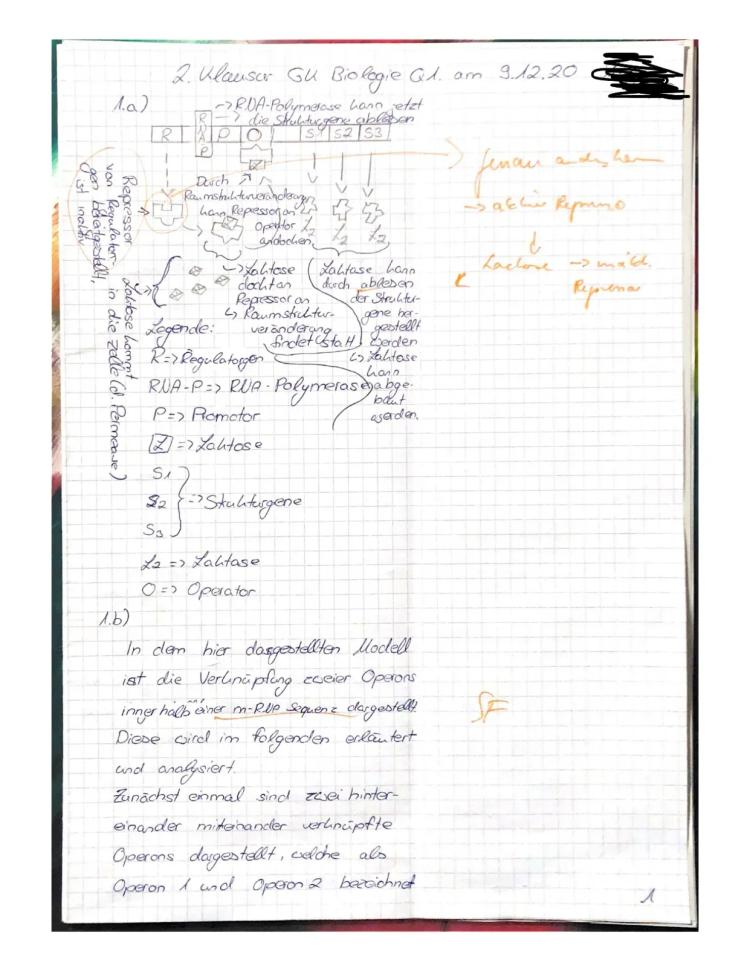 2. Klausur GK Biologie Q1. am 9.12.20
1.a)
-> RNA-Polymerase kann jetzt
-> die Strukturgene ablesen
R
R
N
A
P
P
O
S1
S2
S3
Durch
Raumstrukturveränderung
kann Repressor an
Operator
andocken.
L2
L2
L2
Repressor
von Regulator-
gen bereitgestellt,
ist inaktiv
Laktose kommt
in die Zelle (d. Permease)
-> Laktose
dockt an
Repressor an
↳ Raumstruktur-
veränderung
findet statt
Laktase kann
durch ablesen
der Struktur-
gene her-
gestellt
werden
↳ Laktose
kann
abge-
baut
werden.
genau anders herum
-> aktiver Repressor
↓
Lactose ->
Repressor
Legende:
R => Regulatorgen
RNA-P => RNA-Polymerase
P => Promotor
L => Laktose
S1
S2 => Strukturgene
S3
L2 => Laktase
O => Operator
1.b)
In dem hier dargestellten Modell
ist die Verknüpfung zweier Operons
innerhalb einer m-RNA Sequenz dargestellt.
SF
Diese wird im folgenden erläutert
und analysiert.
Zunächst einmal sind zwei hinter-
einander miteinander verknüpfte
Operons dargestellt, welche als
Operon 1 und Operon 2 bezeichnet
1